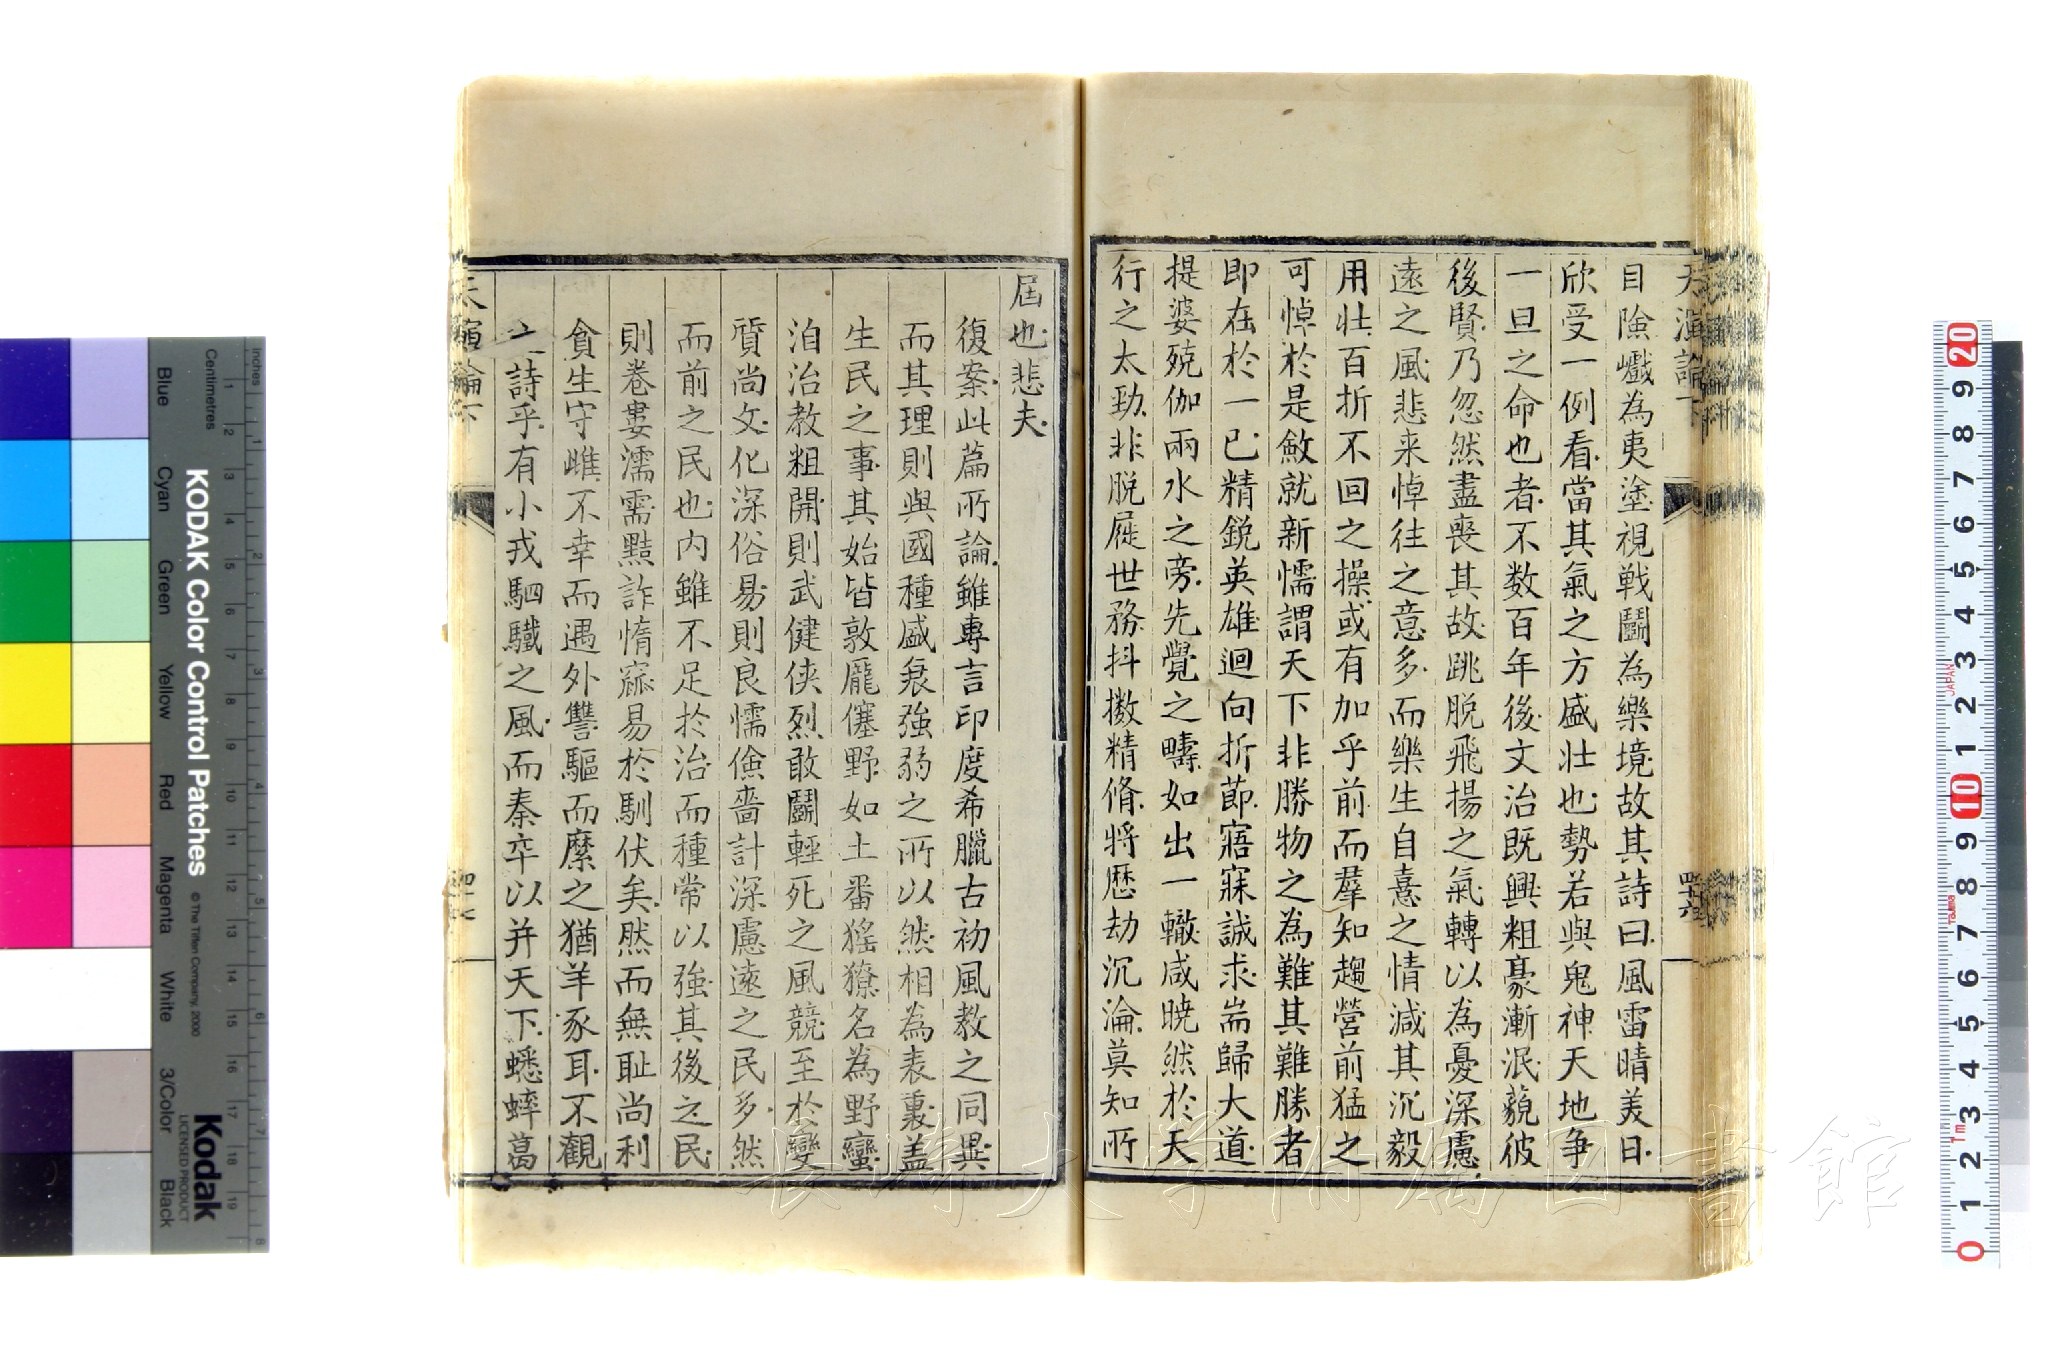 天演論下
目險巇為夷塗視戰鬬為樂境故其詩曰風雷晴美日
欣受一例看當其氣之方盛壯也勢若與鬼神天地爭
一旦之命也者不数百年後文治既興粗豪漸泯藐彼
後賢乃忽然盡喪其故跳脫飛揚之氣轉以為憂深慮
遠之風悲来悼往之意多而樂生自憙之情減其沉毅
用壯百折不回之操或有加乎前而羣知趨營前猛之
可悼於是斂就新懦謂天下非勝物之為難其難勝者
即在於一已精鋭英雄迴向折節寤寐誠求耑歸大道
提婆殑伽兩水之旁先覺之疇如出一轍咸曉然於天
行之太勁非脫屣世務抖擻精脩將歷劫沉淪莫知所
四十六
屆也悲夫
復案此篇所論雖專言印度希臘古初風教之同異
而其理則與國種盛衰強弱之所以然相為表裏盖
生民之事其始皆敦龐僿野如土番猺獠名為野蠻
洎治教粗開則武健俠烈敢鬬輕死之風競至於變
質尚文化深俗易則良懦儉嗇計深慮遠之民多然
而前之民也内雖不足於治而種常以強其後之民
則卷婁濡需黠詐惰窳易於馴伏矣然而無耻尚利
貪生守雌不幸而遇外讐驅而縻之猶羊豕耳不觀
之詩乎有小戎駟驖之風而秦卒以并天下蟋蟀葛
天演論下
長崎大学附属図書館
KODAK Color Control Patches
© The Tiffen Company, 2000
Kodak
LICENSED PRODUCT
Inches
Centimetres
Blue
Cyan
Green
Yellow
Red
Magenta
White
3/Color
Black